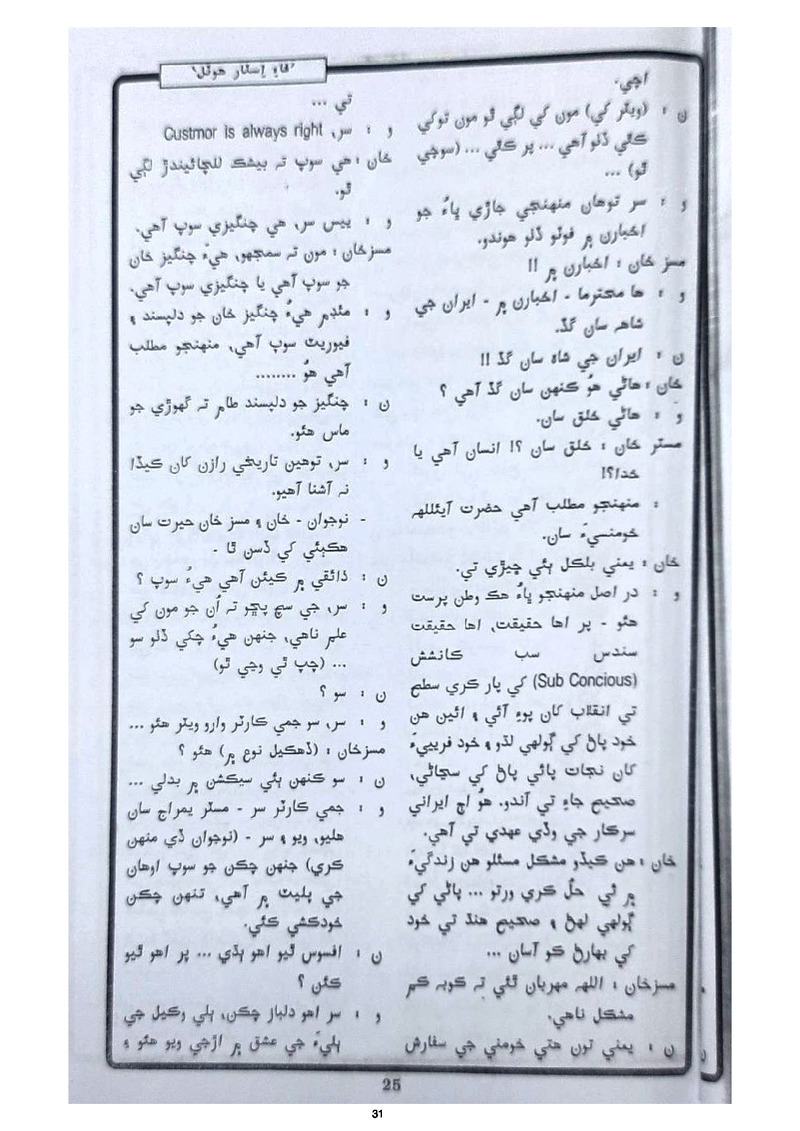 ’فاءِ اِسٽار هوٽل‘
اچي.
ن : (ويٽر کي) مون کي لڳي ٿو مون توکي
ڪٿي ڏٺو آهي ... پر ڪٿي ... (سوچي
ٿو) ...
و : سر توهان منهنجي جاڙي ڀاءُ جو
اخبارن ۾ فوٽو ڏٺو هوندو.
مسز خان : اخبارن ۾ !!
و : ها محترما - اخبارن ۾ - ايران جي
شاهه سان گڏ.
ن : ايران جي شاه سان گڏ !!
خان : هاڻي هوُ ڪنهن سان گڏ آهي ؟
و : هاڻي خلق سان.
مسٽر خان : خلق سان ؟! انسان آهي يا
خدا؟!
: منهنجو مطلب آهي حضرت آيئللهه
خومنسيءَ سان.
خان : يعني بلڪل ٻئي ڇيڙي تي.
و : در اصل منهنجو ڀاءُ هڪ وطن پرست
هئو - پر اها حقيقت، اها حقيقت
سندس سب ڪانشش
(Sub Concious) کي پار ڪري سطح
تي انقلاب کان پوءِ آئي ۽ ائين هن
خود پاڻ کي ڳولهي لڌو ۽ خود فريبيءَ
کان نجات پائي پاڻ کي سڃاڻي،
صحيح جاءِ تي آندو. هوُ اڄ ايراني
سرڪار جي وڏي عهدي تي آهي.
خان : هن ڪيڏو مشڪل مسئلو هن زندگيءَ
۾ ئي حلُ ڪري ورتو ... پاڻي کي
ڳولهي لهڻ ۽ صحيح هنڌ تي خود
کي بهارڻ ڪو آسان ...
مسزخان : اللهه مهربان ٿئي ته ڪوبه ڪم
مشڪل ناهي.
ن : يعني تون هتي خومني جي سفارش
تي ...
و : سر، Custmor is always right
خان : هي سوپ ته بيشڪ للچائيندڙ لڳي
ٿو.
و : ييس سر، هي چنگيزي سوپ آهي.
مسزخان : مون ته سمجهو، هيءَ چنگيز خان
جو سوپ آهي يا چنگيزي سوپ آهي.
و : مئڊم هيءُ چنگيز خان جو دلپسند ۽
فيوريٽ سوپ آهي، منهنجو مطلب
آهي هوُ ........
ن : چنگيز جو دلپسند طام ته گهوڙي جو
ماس هئو.
و : سر، توهين تاريخي رازن کان ڪيڏا
نه آشنا آهيو.
- نوجوان - خان ۽ مسز خان حيرت سان
هڪٻئي کي ڏسن ٿا -
ن : ذائقي ۾ ڪيئن آهي هيءُ سوپ ؟
و : سر، جي سچ پڇو ته اُن جو مون کي
علم ناهي، جنهن هيءُ چکي ڏٺو سو
... (چپ ٿي وڃي ٿو)
ن : سو ؟
و : سر، سو جمي ڪارٽر وارو ويٽر هئو ...
مسزخان : (ڏهڪيل نوع ۾) هئو ؟
ن : سو ڪنهن ٻئي سيڪشن ۾ بدلي ...
و : جمي ڪارٽر سر - مسٽر يمراج سان
هليو، ويو ۽ سر - (نوجوان ڏي منهن
ڪري) جنهن چڪن جو سوپ اوهان
جي پليٽ ۾ آهي، تنهن چڪن
خودڪشي ڪئي.
ن : افسوس ٿيو اهو ٻڌي ... پر اهو ٿيو
ڪئن ؟
و : سر اهو دلباز چڪن، ٻلي وڪيل جي
ٻليءَ جي عشق ۾ اڙجي ويو هئو ۽
25
31